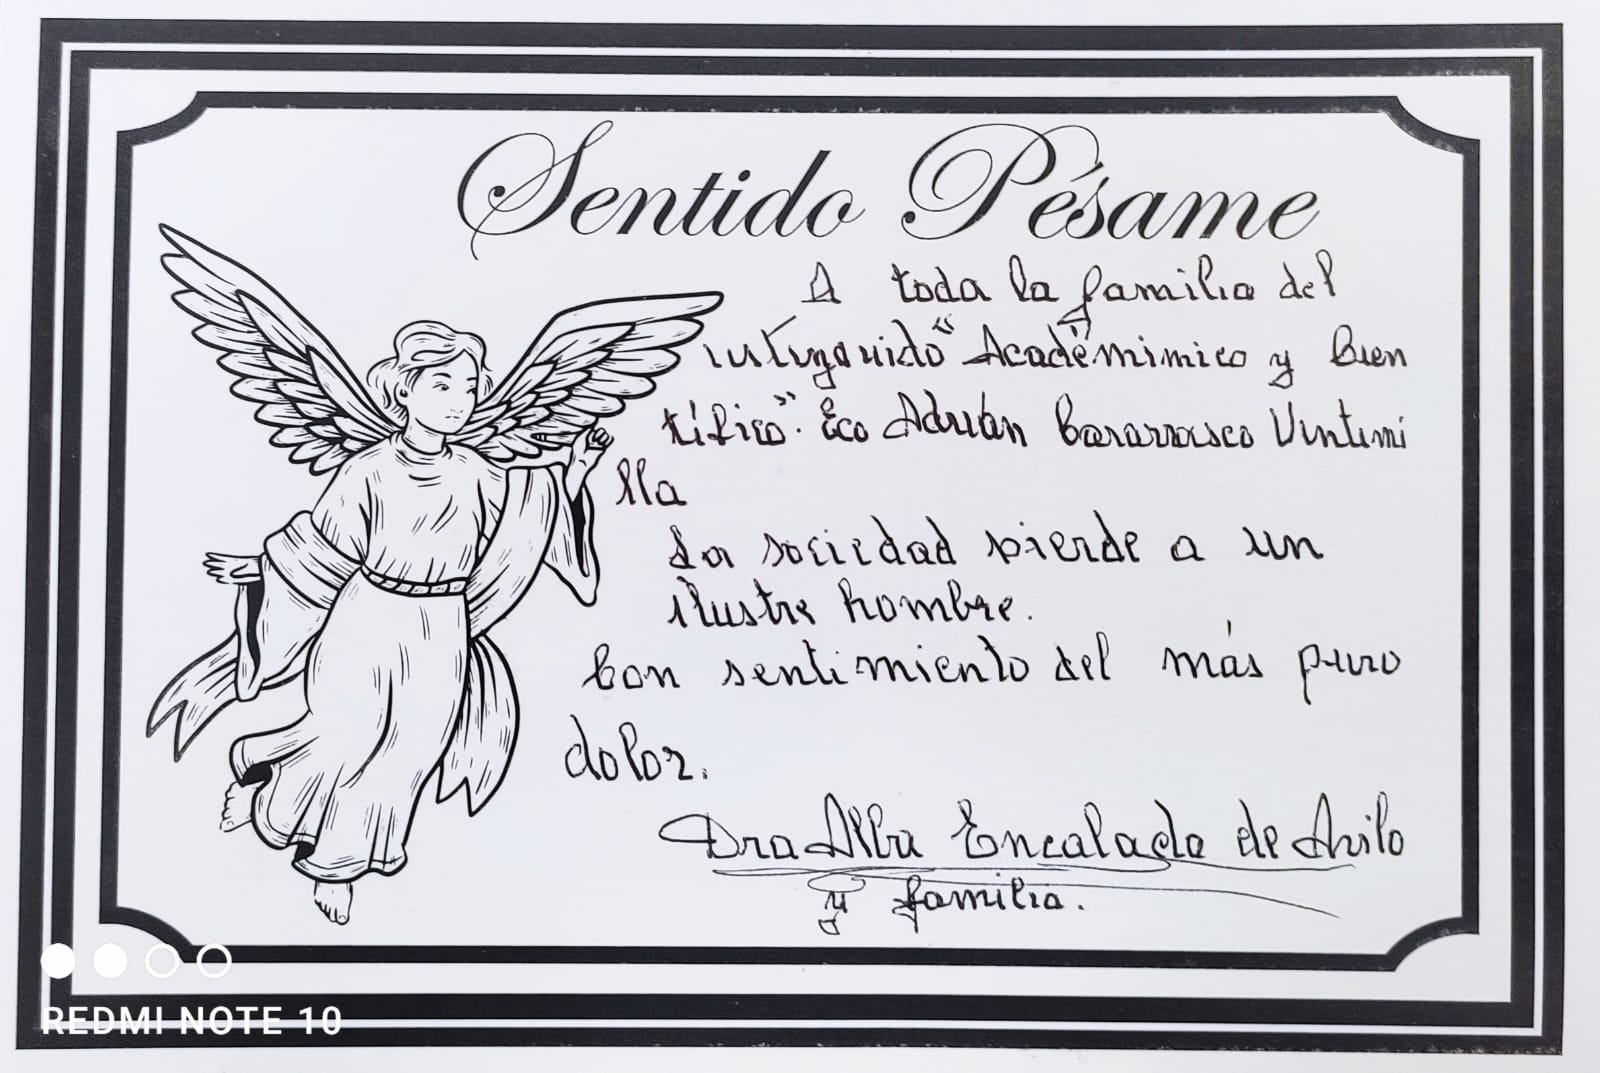 Sentido Pésame
A toda la familia del
"Académimico y Cien
tífico". Eco Adrián Cararrasco Vintimi
lla
La sociedad pierde a un
ilustre hombre.
Con sentimiento del más puro
dolor.
Dra Alba Encalada de
y familia.
REDMI NOTE 10